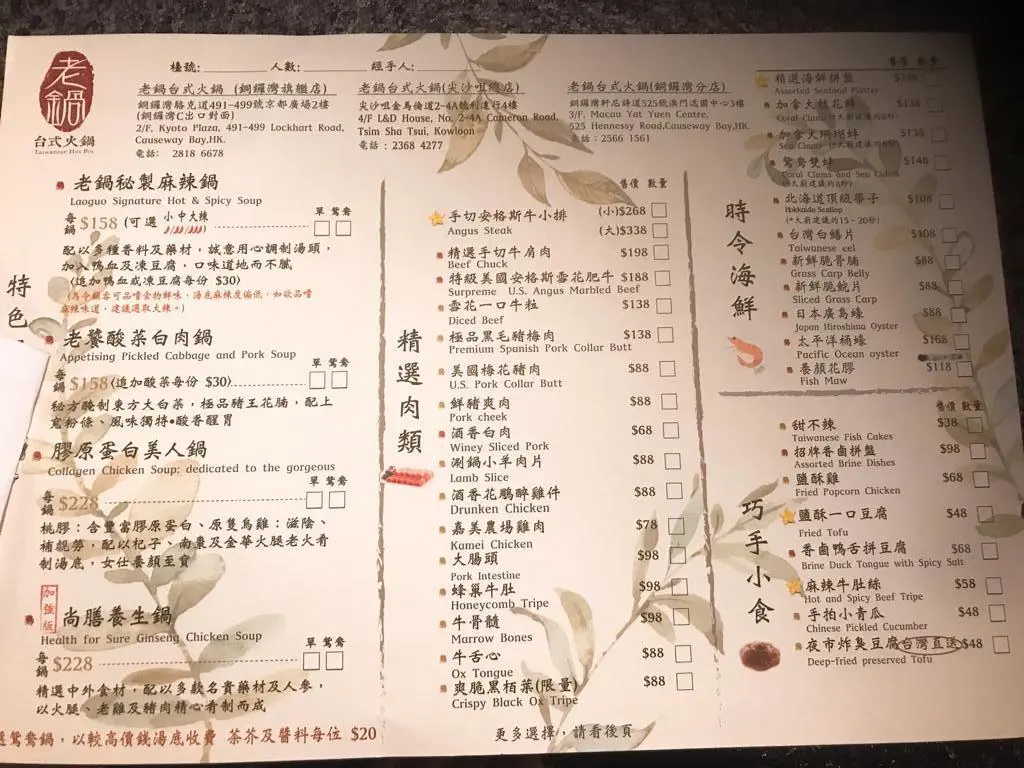 老鍋
台式火鍋
Taiwanese Hot Pot
檯號: 人數: 經手人:
老鍋台式火鍋 (銅鑼灣旗艦店)
銅鑼灣駱克道491-499號京都廣場2樓
(銅鑼灣C出口對面)
2/F, Kyoto Plaza, 491-499 Lockhart Road,
Causeway Bay,HK.
電話: 2818 6678
老鍋台式火鍋(尖沙咀總店)
尖沙咀金馬倫道2-4A號利達行4樓
4/F L&D House, No. 2-4A Cameron Road,
Tsim Sha Tsui, Kowloon
電話: 2368 4277
老鍋台式火鍋(銅鑼灣分店)
銅鑼灣軒尼詩道525號澳門逸園中心3樓
3/F, Macau Yat Yuen Centre,
525 Hennessy Road,Causeway Bay,HK.
電話: 2566 1561
特色
老鍋秘製麻辣鍋
Laoguo Signature Hot & Spicy Soup
單 鴛鴦
每鍋 $158 (可選 小中大辣
配以多種香料及藥材，誠意用心調制湯頭，
加入鴨血及凍豆腐，口味道地而不膩
(追加鴨血或凍豆腐每份 $30)
(為令顧客可品嚐食物鮮味，湯底麻辣度偏低，如欲品嚐
麻辣味道，建議選取大辣。)
老饕酸菜白肉鍋
Appetising Pickled Cabbage and Pork Soup
單 鴛鴦
每鍋 $158 (追加酸菜每份 $30)
秘方醃制東方大白菜，極品豬王花腩，配上
寬粉條、風味獨特•酸香醒胃
膠原蛋白美人鍋
Collagen Chicken Soup: dedicated to the gorgeous
單 鴛鴦
每鍋 $228
桃膠：含豐富膠原蛋白、原隻烏雞：滋陰、
補虢勞，配以杞子、南棗及金華火腿老火肴
制湯底，女仕養顏至寶
加強版
尚膳養生鍋
Health for Sure Ginseng Chicken Soup
單 鴛鴦
每鍋 $228
精選中外食材，配以多款名貴藥材及人參，
以火腿、老雞及豬肉精心肴制而成
選鴛鴦鍋，以較高價錢湯底收費 茶芥及醬料每位 $20
精選肉類
售價 數量
手切安格斯牛小排 (小)$268
Angus Steak (大)$338
精選手切牛肩肉 $198
Beef Chuck
特級美國安格斯雪花肥牛 $188
Surpreme U.S. Angus Marbled Beef
雪花一口牛粒 $138
Diced Beef
極品黑毛豬梅肉 $138
Premium Spanish Pork Collar Butt
美國梅花豬肉 $88
U.S. Pork Collar Butt
鮮豬爽肉 $88
Pork cheek
酒香白肉 $68
Winey Sliced Pork
涮鍋小羊肉片 $88
Lamb Slice
酒香花鵰醉雞件 $88
Drunken Chicken
嘉美農場雞肉 $78
Kamei Chicken
大腸頭 $98
Pork Intestine
蜂巢牛肚 $98
Honeycomb Tripe
牛骨髓 $98
Marrow Bones
牛舌心 $88
Ox Tongue
爽脆黑栢葉(限量) $88
Crispy Black Ox Tripe
更多選擇，請看後頁
時令海鮮
售價 數量
精選海鮮拼盤
Assorted Seafood Platter
加拿大桂花蚌 $138
Coral Clams
加拿大珊瑚蚌 $138
Sea Clams
鴛鴦雙蚌 $148
Coral Clams and Sea Clams
北海道頂級帶子 $108
Hokkaido Scallop
(*大廚建議約15-20秒)
台灣白鱔片 $108
Taiwanese eel
新鮮脆骨腩 $88
Grass Carp Belly
新鮮脆鯇片 $88
Sliced Grass Carp
日本廣島蠔 $88
Japan Hiroshima Oyster
太平洋桶蠔 $168
Pacific Ocean oyster
養顏花膠 $118
Fish Maw
巧手小食
售價 數量
甜不辣 $38
Taiwanese Fish Cakes
招牌香鹵拼盤 $98
Assorted Brine Dishes
鹽酥雞 $68
Fried Popcorn Chicken
鹽酥一口豆腐 $48
Fried Tofu
香鹵鴨舌拼豆腐 $68
Brine Duck Tongue with Spicy Salt
麻辣牛肚絲 $58
Hot and Spicy Beef Tripe
手拍小青瓜 $48
Chinese Pickled Cucumber
夜市炸臭豆腐 台灣直送 $48
Deep-fried preserved Tofu